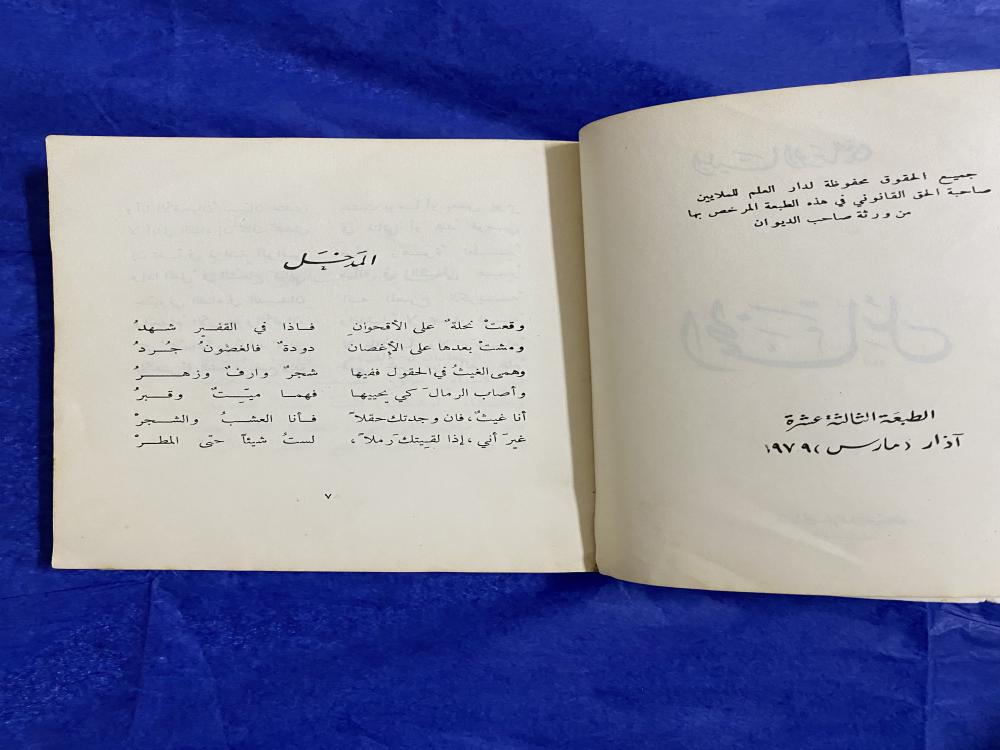 جميع الحقوق محفوظة لدار العلم للملايين
صاحبة الحق القانوني في هذه الطبعة المرخص بها
من ورثة صاحب الديوان
الطبعة الثالثة عشرة
آذار (مارس) ١٩٧٩
المدخل
وقعتْ نحلةٌ على الأقحوانِ فاذا في القفيرِ شهدُ
ومشتْ بعدها على الأغصان دودةٌ فالغصونُ جُردُ
وهمى الغيثُ في الحقول ففيها شجرٌ وارفٌ وزهرُ
وأصاب الرمالَ كي يحييها فهما ميّتٌ وقبرُ
أنا غيثٌ، فان وجدتك حقلاً فأنا العشبُ والشجرْ
غيرَ أني، إذا لقيتك رملاً، لستُ شيئاً حتى المطرْ
٧